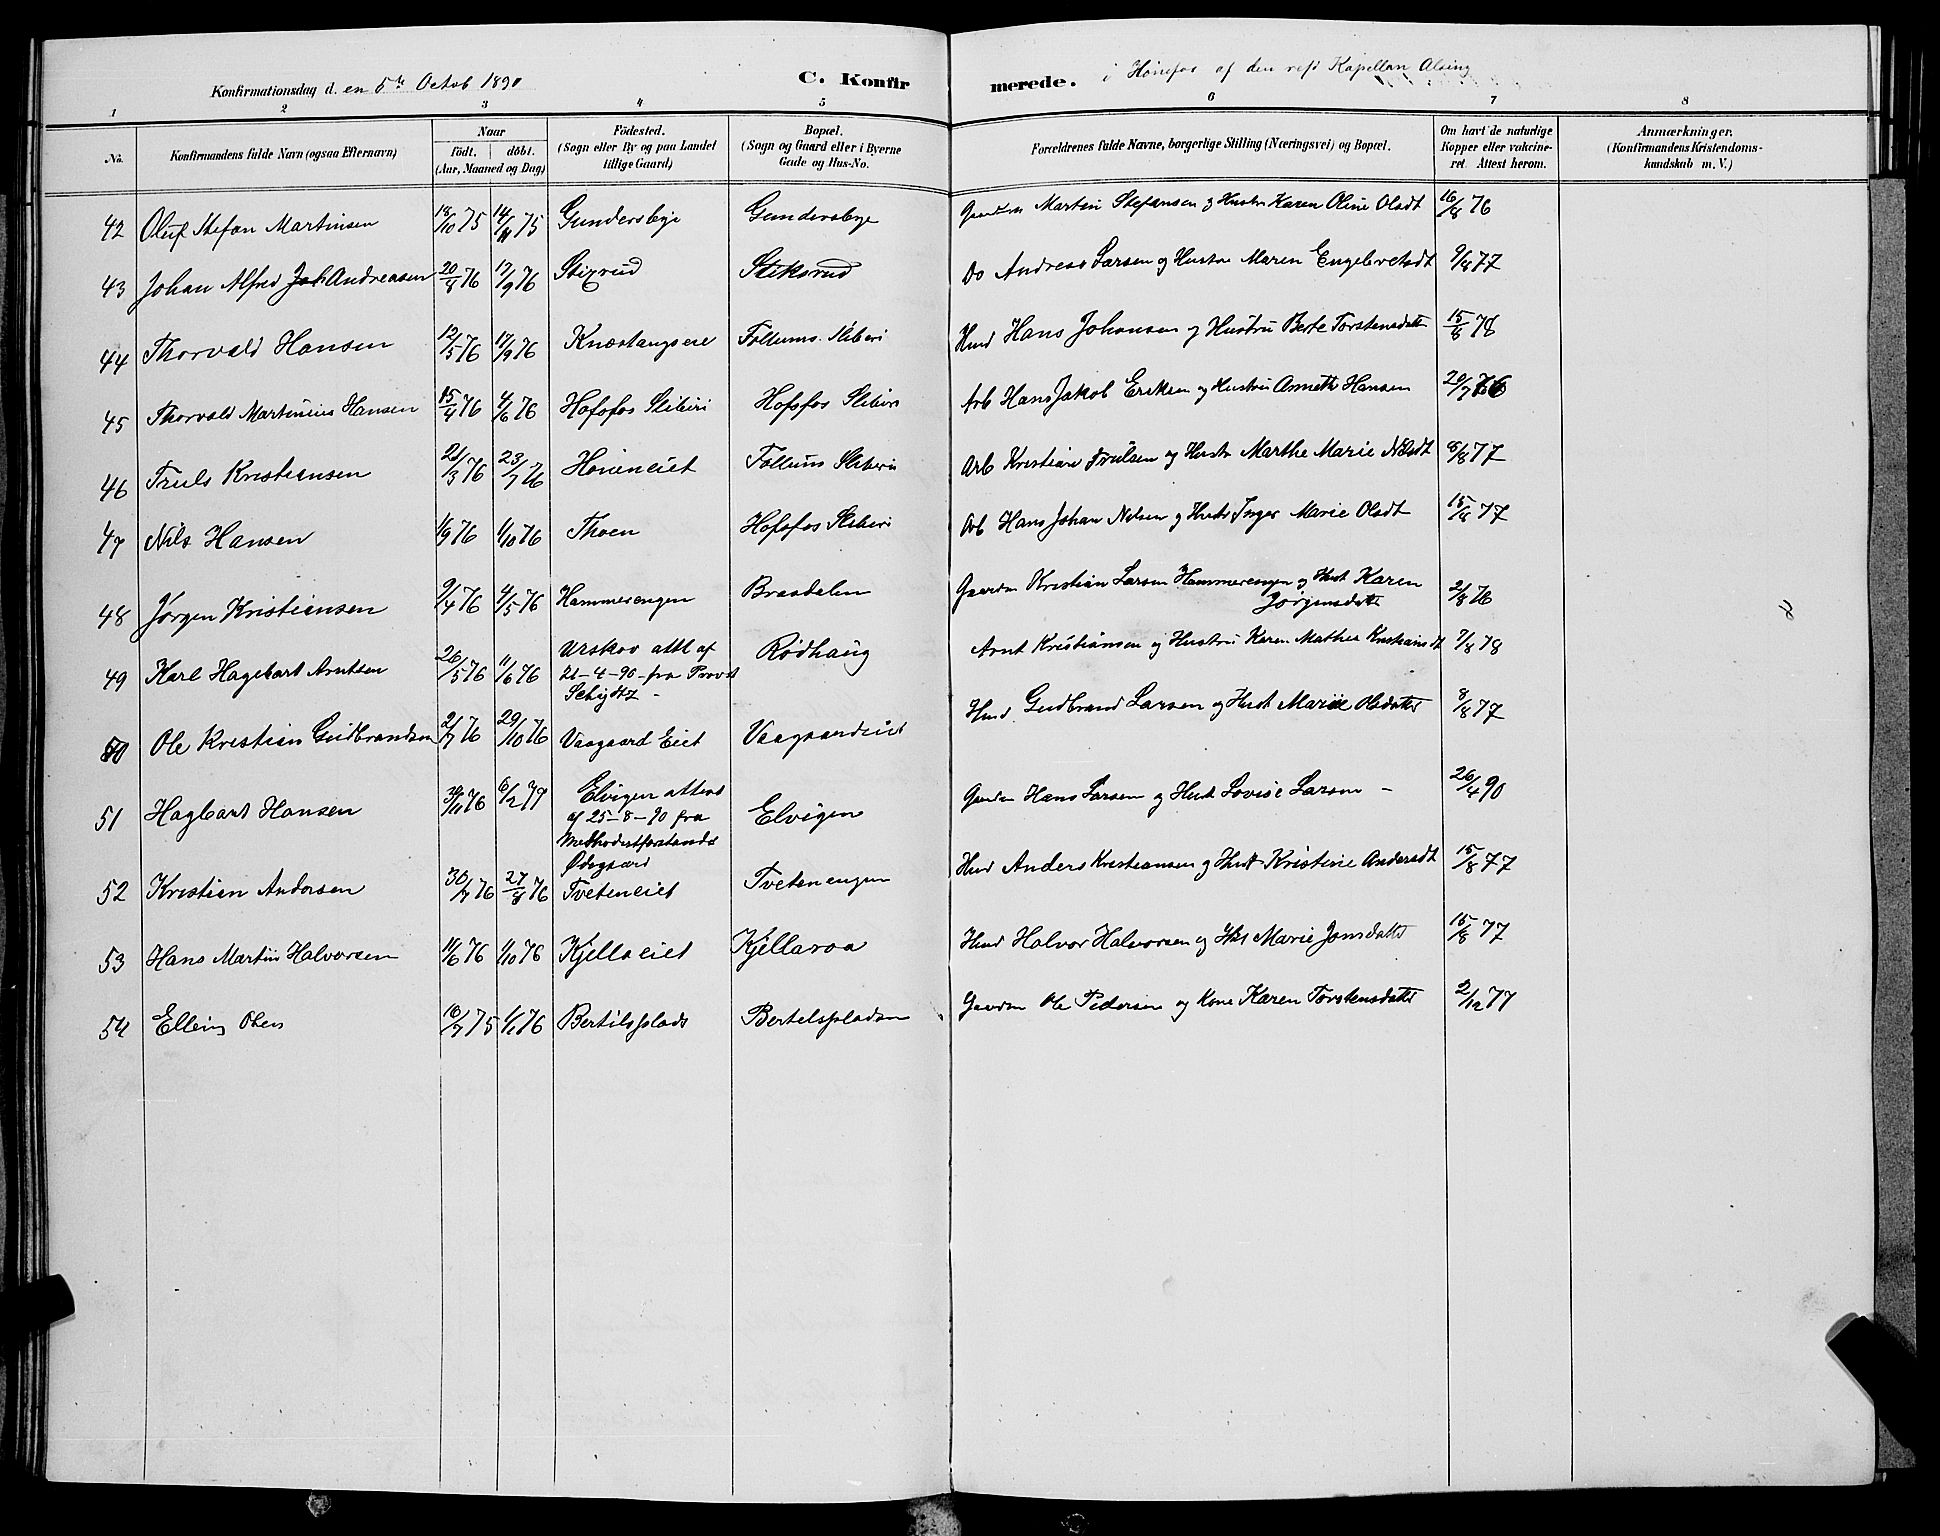 Konfirmationsdag d. en 5te Octob 1890 C. Konfirmerede. i Hønefos af den resp Kapellan Alsing
1 2 3 4 5 6 7 8
No. Konfirmandens fulde Navn (ogsaa Efternavn) Naar Födt. döbt. (Aar, Maaned og Dag) Födested. (Sogn eller By og paa Landet tillige Gaard) Bopæl. (Sogn og Gaard eller i Byerne Gade og Hus-No. Forældrenes fulde Navne, borgerlige Stilling (Næringsvei) og Bopæl. Om havt de naturlige Kopper eller vakcineret. Attest herom. Anmærkninger. (Konfirmandens Kristendomskundskab m. V.)
42 Oluf Stefan Martinsen 18/10 75 14/11 75 Gundersbye Gundersbye Gaardm Martin Stefansen og Hustru Karen Oline Olsdt 16/8 76
43 Johan Alfred Joh Andreasen 20/8 76 17/9 76 Stixrud Stiksrud Do Andreas Larsen og Hustru Maren Engebretsdt 9/8 77
44 Thorvald Hansen 12/5 76 17/9 76 Knæstangseie Follums Sliberi Hmd Hans Johansen og Hustru Berte Torstensdatte 15/8 78
45 Thorvald Martinius Hansen 15/4 76 4/6 76 Hofsfos Sliberi Hofsfos Sliberi Arb Hans Jakob Eriksen og Hustru Annette Hansen 20/7 76
46 Truls Kristiansen 21/3 76 23/7 76 Höieneiet Follums Sliberi Arb Kristian Trulsen og Hustr Marthe Marie Nilsdt 8/8 77
47 Nils Hansen 1/9 76 1/10 76 Thoen Hofsfos Sliberi Arb Hans Johan Nilsen og Hustr Inger Marie Olsdt 15/8 77
48 Jørgen Kristiansen 9/4 76 4/5 76 Hammerengen Braadalen Gaardm Kristian Larsen Hammerengen og Hust Karen
Jörgensdatte 2/8 76
49 Karl Hagebart Arntsen 26/5 76 11/6 76 Urskov attl af
21-4-90- fra Provst
Schjøtz - Rødhaug Arnt Kristiansen og Hustru Karen Mathea Kristiansdt 7/8 78
50 Ole Kristian Gudbrandsen 2/7 76 29/10 76 Vaagaard Eiet Vaagaardeiet Hmd. Gudbrand Larsen og Hust Marie Olsdatter 8/8 77
51 Hagbart Hansen 6/2 79 Elvigen attest
af 25-8-90 fra
Methodistforstander
Ødegaard Elvigen Gaardm Hans Larsen og Hust Lovise Larsen - 26/4 90
52 Kristian Andersen 30/7 76 27/8 76 Tveteneiet Tvetenengen Hmd Anders Kristiansen og Hust Kristine Andersdt 15/8 77
53 Hans Martin Halvorsen 11/6 76 1/10 76 Kjellaeiet Kjellaroa Hmd Halvor Halvorsen og Hust Marie Jonsdatter 15/8 77
54 Elling Olsen 16/7 75 1/1 76 Bertilsplads Bertelspladsen Gaardm Ole Pedersen og Kone Karen Torstensdatter 2/12 77